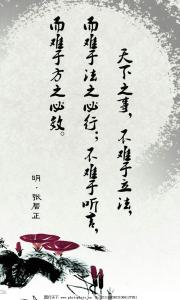 天下之事，不难于立法，
而难于法之必行；不难于听言，
而难于言之必效。
明·张居正